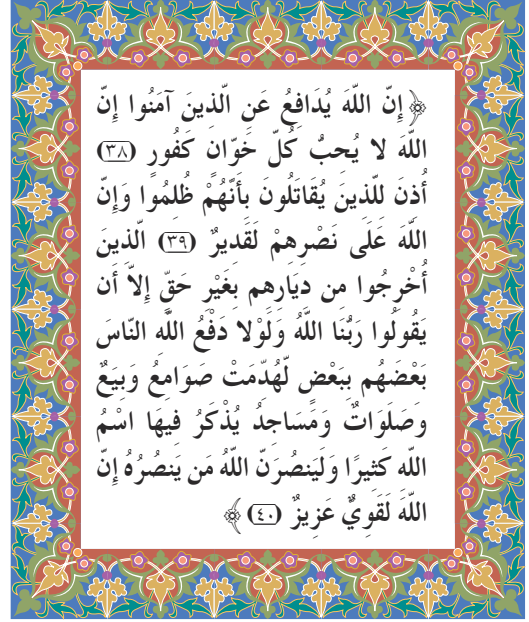 ﴿ إِنَّ اللَّهَ يُدَافِعُ عَنِ الَّذِينَ آمَنُوا إِنَّ
اللَّهَ لا يُحِبُّ كُلَّ خَوَّانٍ كَفُورٍ (٣٨)
أُذِنَ لِلَّذِينَ يُقَاتَلُونَ بِأَنَّهُمْ ظُلِمُوا وَإِنَّ
اللَّهَ عَلَى نَصْرِهِمْ لَقَدِيرٌ (٣٩) الَّذِينَ
أُخْرِجُوا مِن دِيَارِهِم بِغَيْرِ حَقٍّ إِلاَّ أَن
يَقُولُوا رَبُّنَا اللَّهُ وَلَوْلا دَفْعُ اللَّهِ النَّاسَ
بَعْضَهُم بِبَعْضٍ لَّهُدِّمَتْ صَوَامِعُ وَبِيَعٌ
وَصَلَوَاتٌ وَمَسَاجِدُ يُذْكَرُ فِيهَا اسْمُ
اللَّهِ كَثِيرًا وَلَيَنصُرَنَّ اللَّهُ مَن يَنصُرُهُ إِنَّ
اللَّهَ لَقَوِيٌّ عَزِيزٌ (٤٠) ﴾